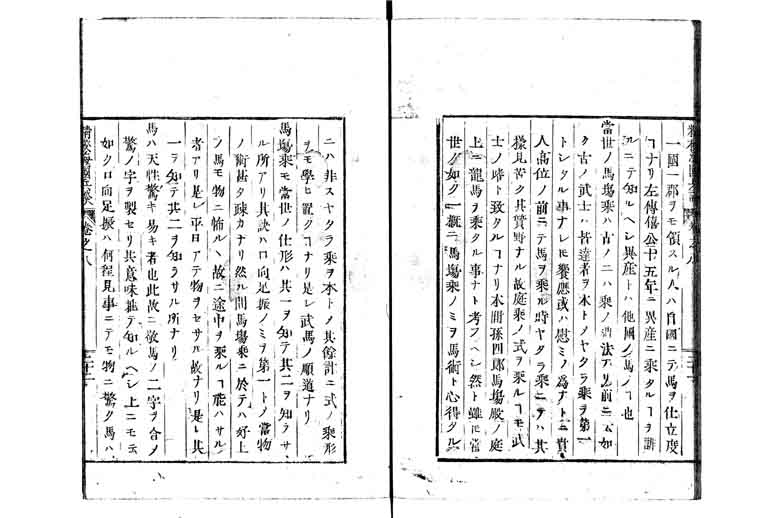 一國一郡ヲモ領スル人ハ自國ニテ馬ヲ仕立度
ヿナリ左傳僖公十五年ニ異産ニ乘タルヿヲ誹
ルニテ知ルヘシ異産トハ他國ノ馬ノヿ也
當世ノ馬場乘ハ古ノ二ハ乘ノ法ナリ前ニ云如
ク古ノ武士ハ皆達者ヲ本トメヤタラ乘ヲ第一
トレタル事ナレ𪜈饗應或ハ慰ミノ爲ナトニ貴
人高位ノ前ニテ馬ヲ乘ル時ヤタラ乘ニテハ其
樣見苦ク其賀野ナル故庭乘ノ式ヲ乘ルヿモ武
士ノ時ト致タルヿナリ本間孫四郎馬場殿ノ庭
上ニ龍馬ヲ乘タル事ナト考フヘシ然ト雖モ當
世ノ如ク一概ニ馬場乘ノミヲ馬術ト心得タル
ニハ非スヤタラ乘ヲ本トメ其餘計ニ式ノ乘形
ヲモ學ヒ置クヿナリ是レ武馬ノ順道ナリ
馬場乘モ當世ノ仕形ハ其一ヲ知テ其二ヲ知ラサ
ル所アリ其訣ハ口向足振ノミヲ第一トノ當物
ノ術甚タ疎カナリ然ル間馬場乘ニ於テハ好上
ノ馬モ物ニ怖ル丶故ニ途中ヲ乘ルヿ能ハサル
者アリ是レ平日アテ物ヲセサル故ナリ是レ其
一ヲ知テ其二ヲ知ラサル所ナリ
馬ハ天性驚キ易キ者也此故ニ敬馬ノ二字ヲ合メ
驚ノ字ヲ製セリ其意味推テ知ルヘシ上ニモ云
如ク口向足振ハ何程見事ニテモ物ニ驚ク馬ハ
海國兵談
卷之八